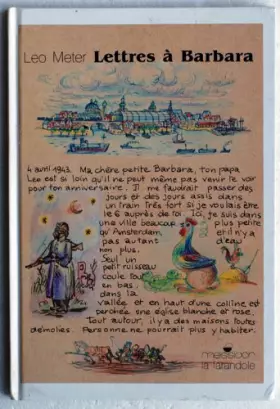 Leo Meter Lettres à Barbara
4 avril 1943. Ma chère petite Barbara, ton papa
Leo est si loin qu'il ne peut même pas venir te voir
pour ton anniversaire. Il me faudrait passer des
jours et des jours assis dans
un train très fort si je voulais être
le 6 auprès de toi. Ici, je suis dans
une ville beaucoup plus petite
qu'Amsterdam, et il n'y a
pas autant d'eau
non plus.
Seul un
petit ruisseau
coule tout
en bas,
dans la
vallée et en haut d'une colline, est
perchée une église blanche et rose.
Tout autour, il y a des maisons toutes
démolies. Personne ne pourrait plus y habiter.
messidor
la farandole